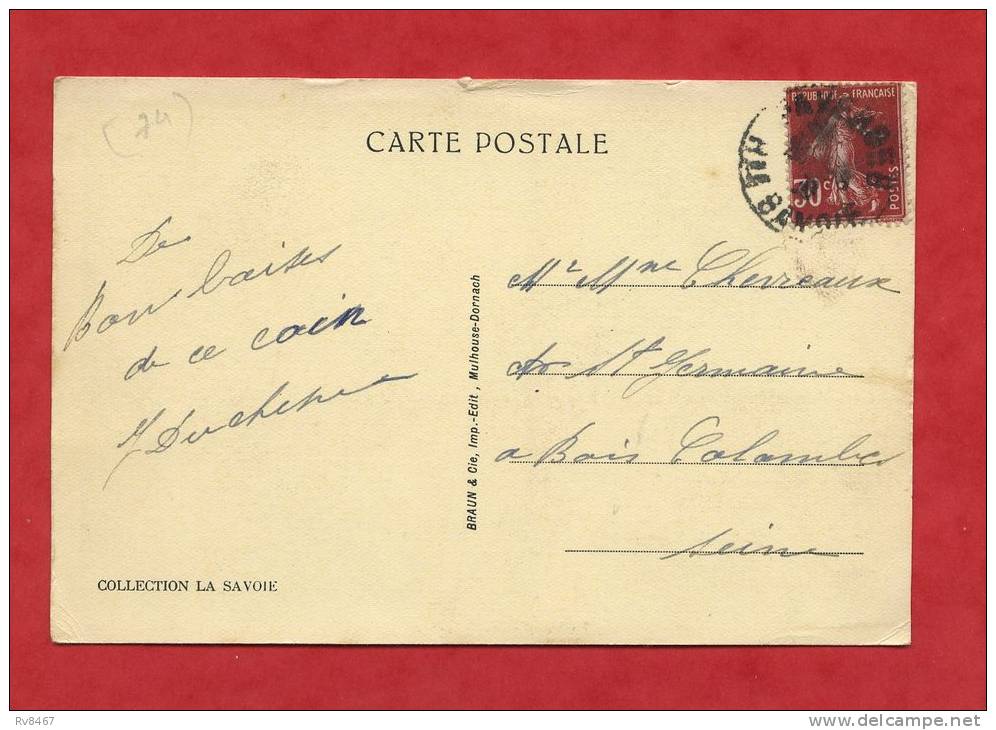 (74)
CARTE POSTALE
REPUBLIQUE FRANÇAISE
30c
POSTES
SAVOIE
De
Bons baisers
de ce coin
Duchesne
BRAUN & Cie, Imp.-Edit, Mulhouse-Dornach
Mr Mme Chevreaux
St Germaine
a Bois Colombes
Seine
COLLECTION LA SAVOIE
Rv8467
www.delcampe.net